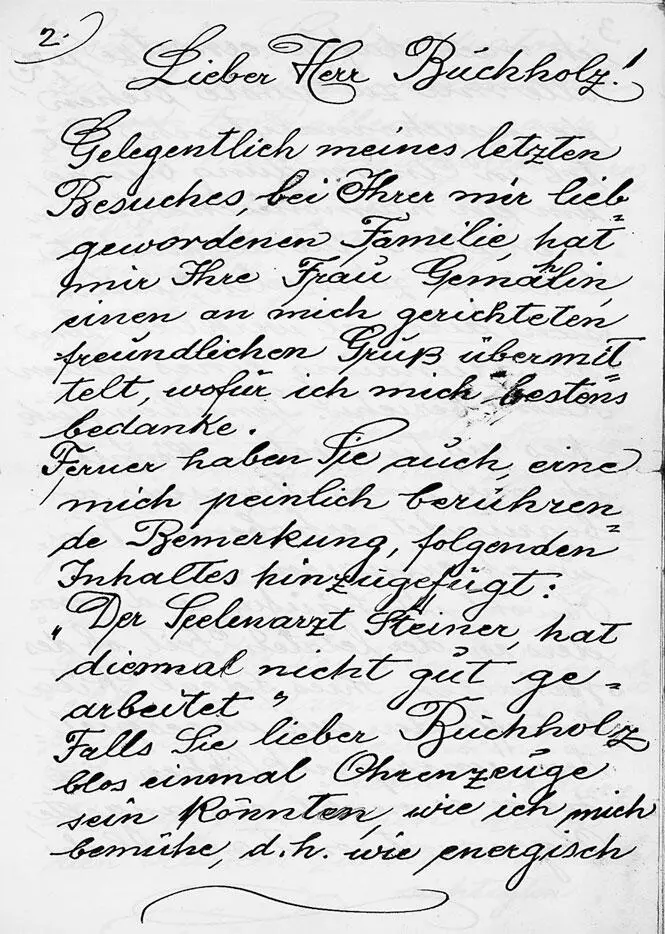 2.)
Lieber Herr Buchholz!
Gelegentlich meines letzten
Besuches, bei Ihrer mir lieb=
gewordenen Familie, hat
mir Ihre Frau Gemahlin,
einen an mich gerichteten
freundlichen Gruß übermit=
telt, wofür ich mich bestens
bedanke.
Ferner haben Sie auch, eine
mich peinlich berühren=
de Bemerkung, folgenden
Inhaltes hinzugefügt:
„Der Seelenarzt Steiner, hat
diesmal nicht gut ge=
arbeitet"
Falls Sie lieber Buchholz
blos einmal Ohrenzeuge
sein könnten, wie ich mich
bemühe, d.h. wie energisch